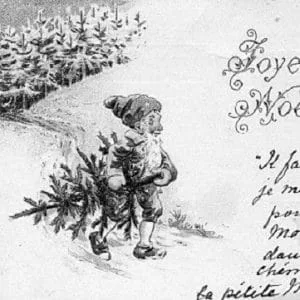 Joye
Noe
"Il fa
je m
pou
Mo
dau
chér
la petite M